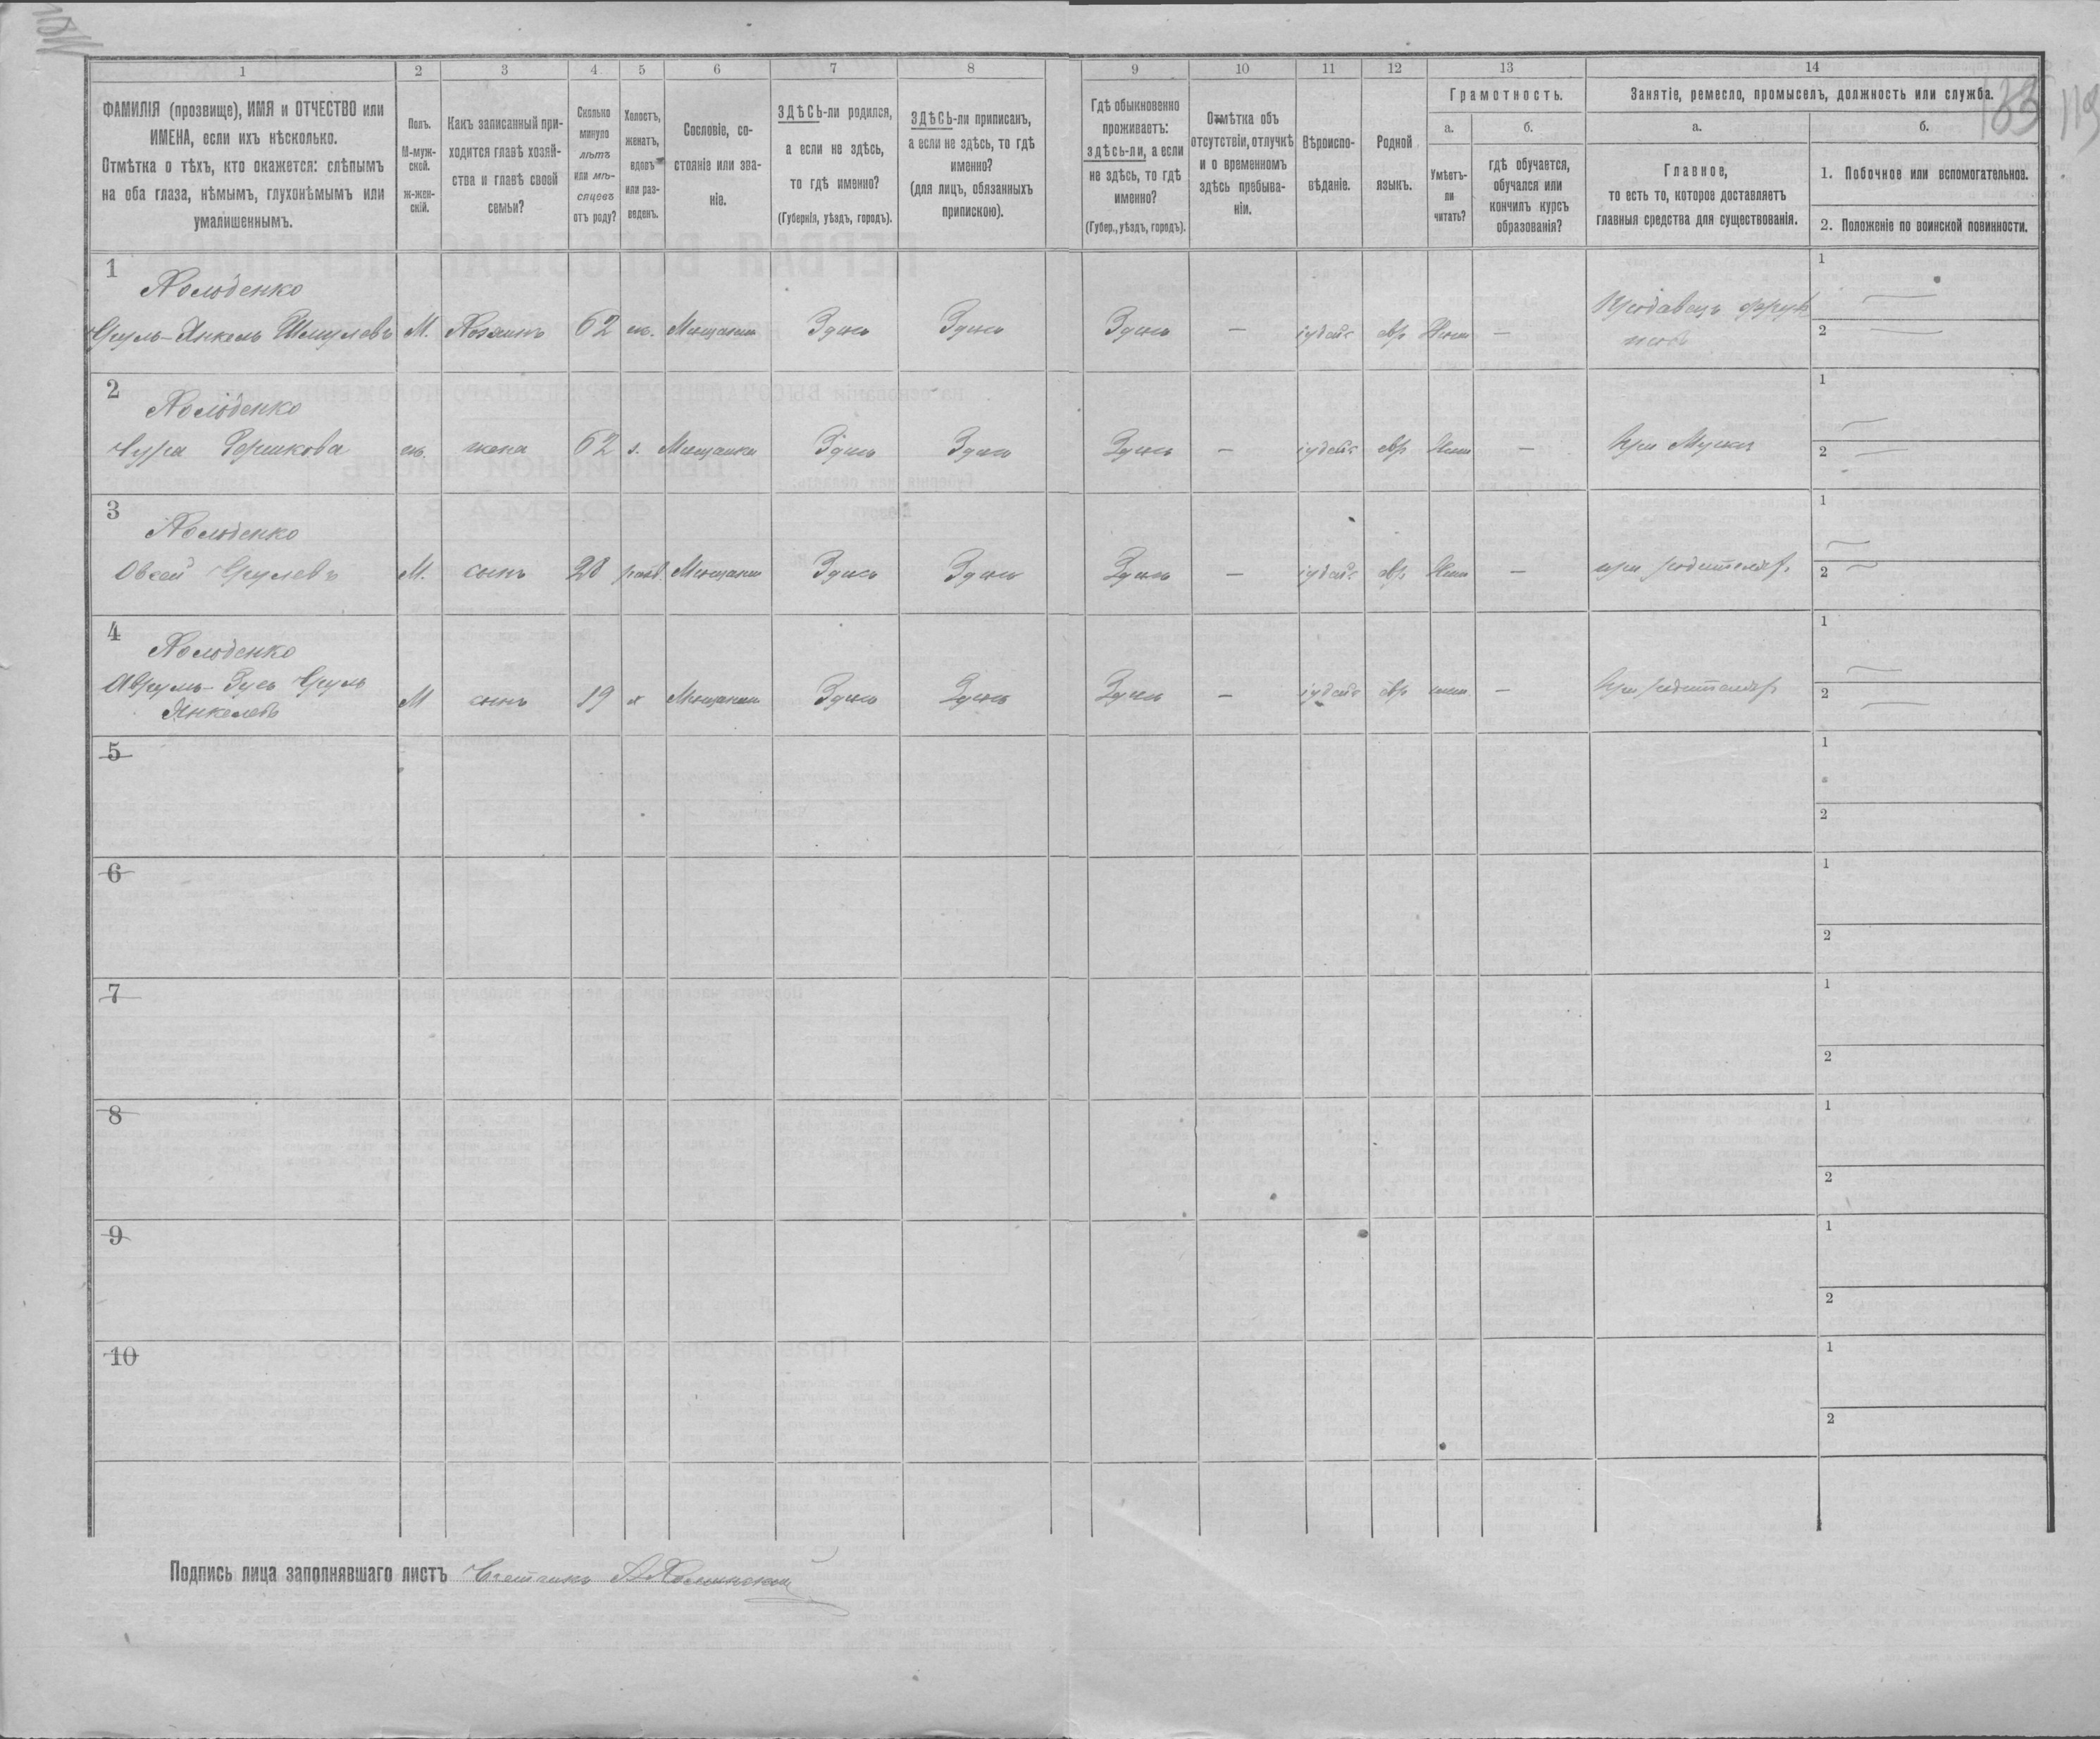 133 119
1 2 3 4 5 6 7 8 9 10 11 12 13 14
ФАМИЛІЯ (прозвище), ИМЯ и ОТЧЕСТВО или
ИМЕНА, если ихъ нѣсколько.
Отмѣтка о тѣхъ, кто окажется: слѣпымъ
на оба глаза, нѣмымъ, глухонѣмымъ или
умалишеннымъ.
Полъ.
М-муж-
ской.
ж-жен-
скій.
Какъ записанный при-
ходится главѣ хозяй-
ства и главѣ своей
семьи?
Сколько
минуло
лѣтъ
или мѣ-
сяцевъ
отъ роду?
Холостъ,
женатъ,
вдовъ
или раз-
веденъ.
Сословіе, со-
стояніе или зва-
ніе.
ЗДѢСЬ-ли родился,
а если не здѣсь,
то гдѣ именно?
(Губернія, уѣздъ, городъ).
ЗДѢСЬ-ли приписанъ,
а если не здѣсь, то гдѣ
именно?
(для лицъ, обязанныхъ
припискою).
Гдѣ обыкновенно
проживаетъ:
здѣсь-ли, а если
не здѣсь, то гдѣ
именно?
(Губер., уѣздъ, городъ).
Отмѣтка объ
отсутствіи, отлучкѣ
и о временномъ
здѣсь пребыва-
ніи.
Вѣроиспо-
вѣданіе.
Родной
языкъ.
Грамотность.
а.
Умѣетъ-
ли
читать?
б.
гдѣ обучается,
обучался или
кончилъ курсъ
образованія?
Занятіе, ремесло, промыселъ, должность или служба.
а.
Главное,
то есть то, которое доставляетъ
главныя средства для существованія.
б.
1. Побочное или вспомогательное.
2. Положеніе по воинской повинности.
1
Холоденко
Сруль-Янкель Шмулевъ М. Хозяинъ 62 ж. Мещанинъ Здесь Здесь Здесь — іудейс евр Неті —
Продавецъ фрук
товъ
1
2
2
Холоденко
Сура Гершкова ж. жена 62 з. Мещанка Здесь Здесь Здесь — іудейс евр —
При Мужи
1
2
3
Холоденко
Овсей Срулевъ М. сынъ 28 разв. Мещанин Здесь Здесь Здесь — іудейс евр —
при родителях.
1
2
4
Холоденко
Аврумъ-Зусь Сруль
Янкелевъ
М сынъ 19 х Мещанин Здесь Здесь Здесь — іудейс евр —
При родителях
1
2
5
1
2
6
1
2
7
1
2
8
1
2
9
1
2
10
1
2
Подпись лица заполнявшаго листъ Счетчикъ